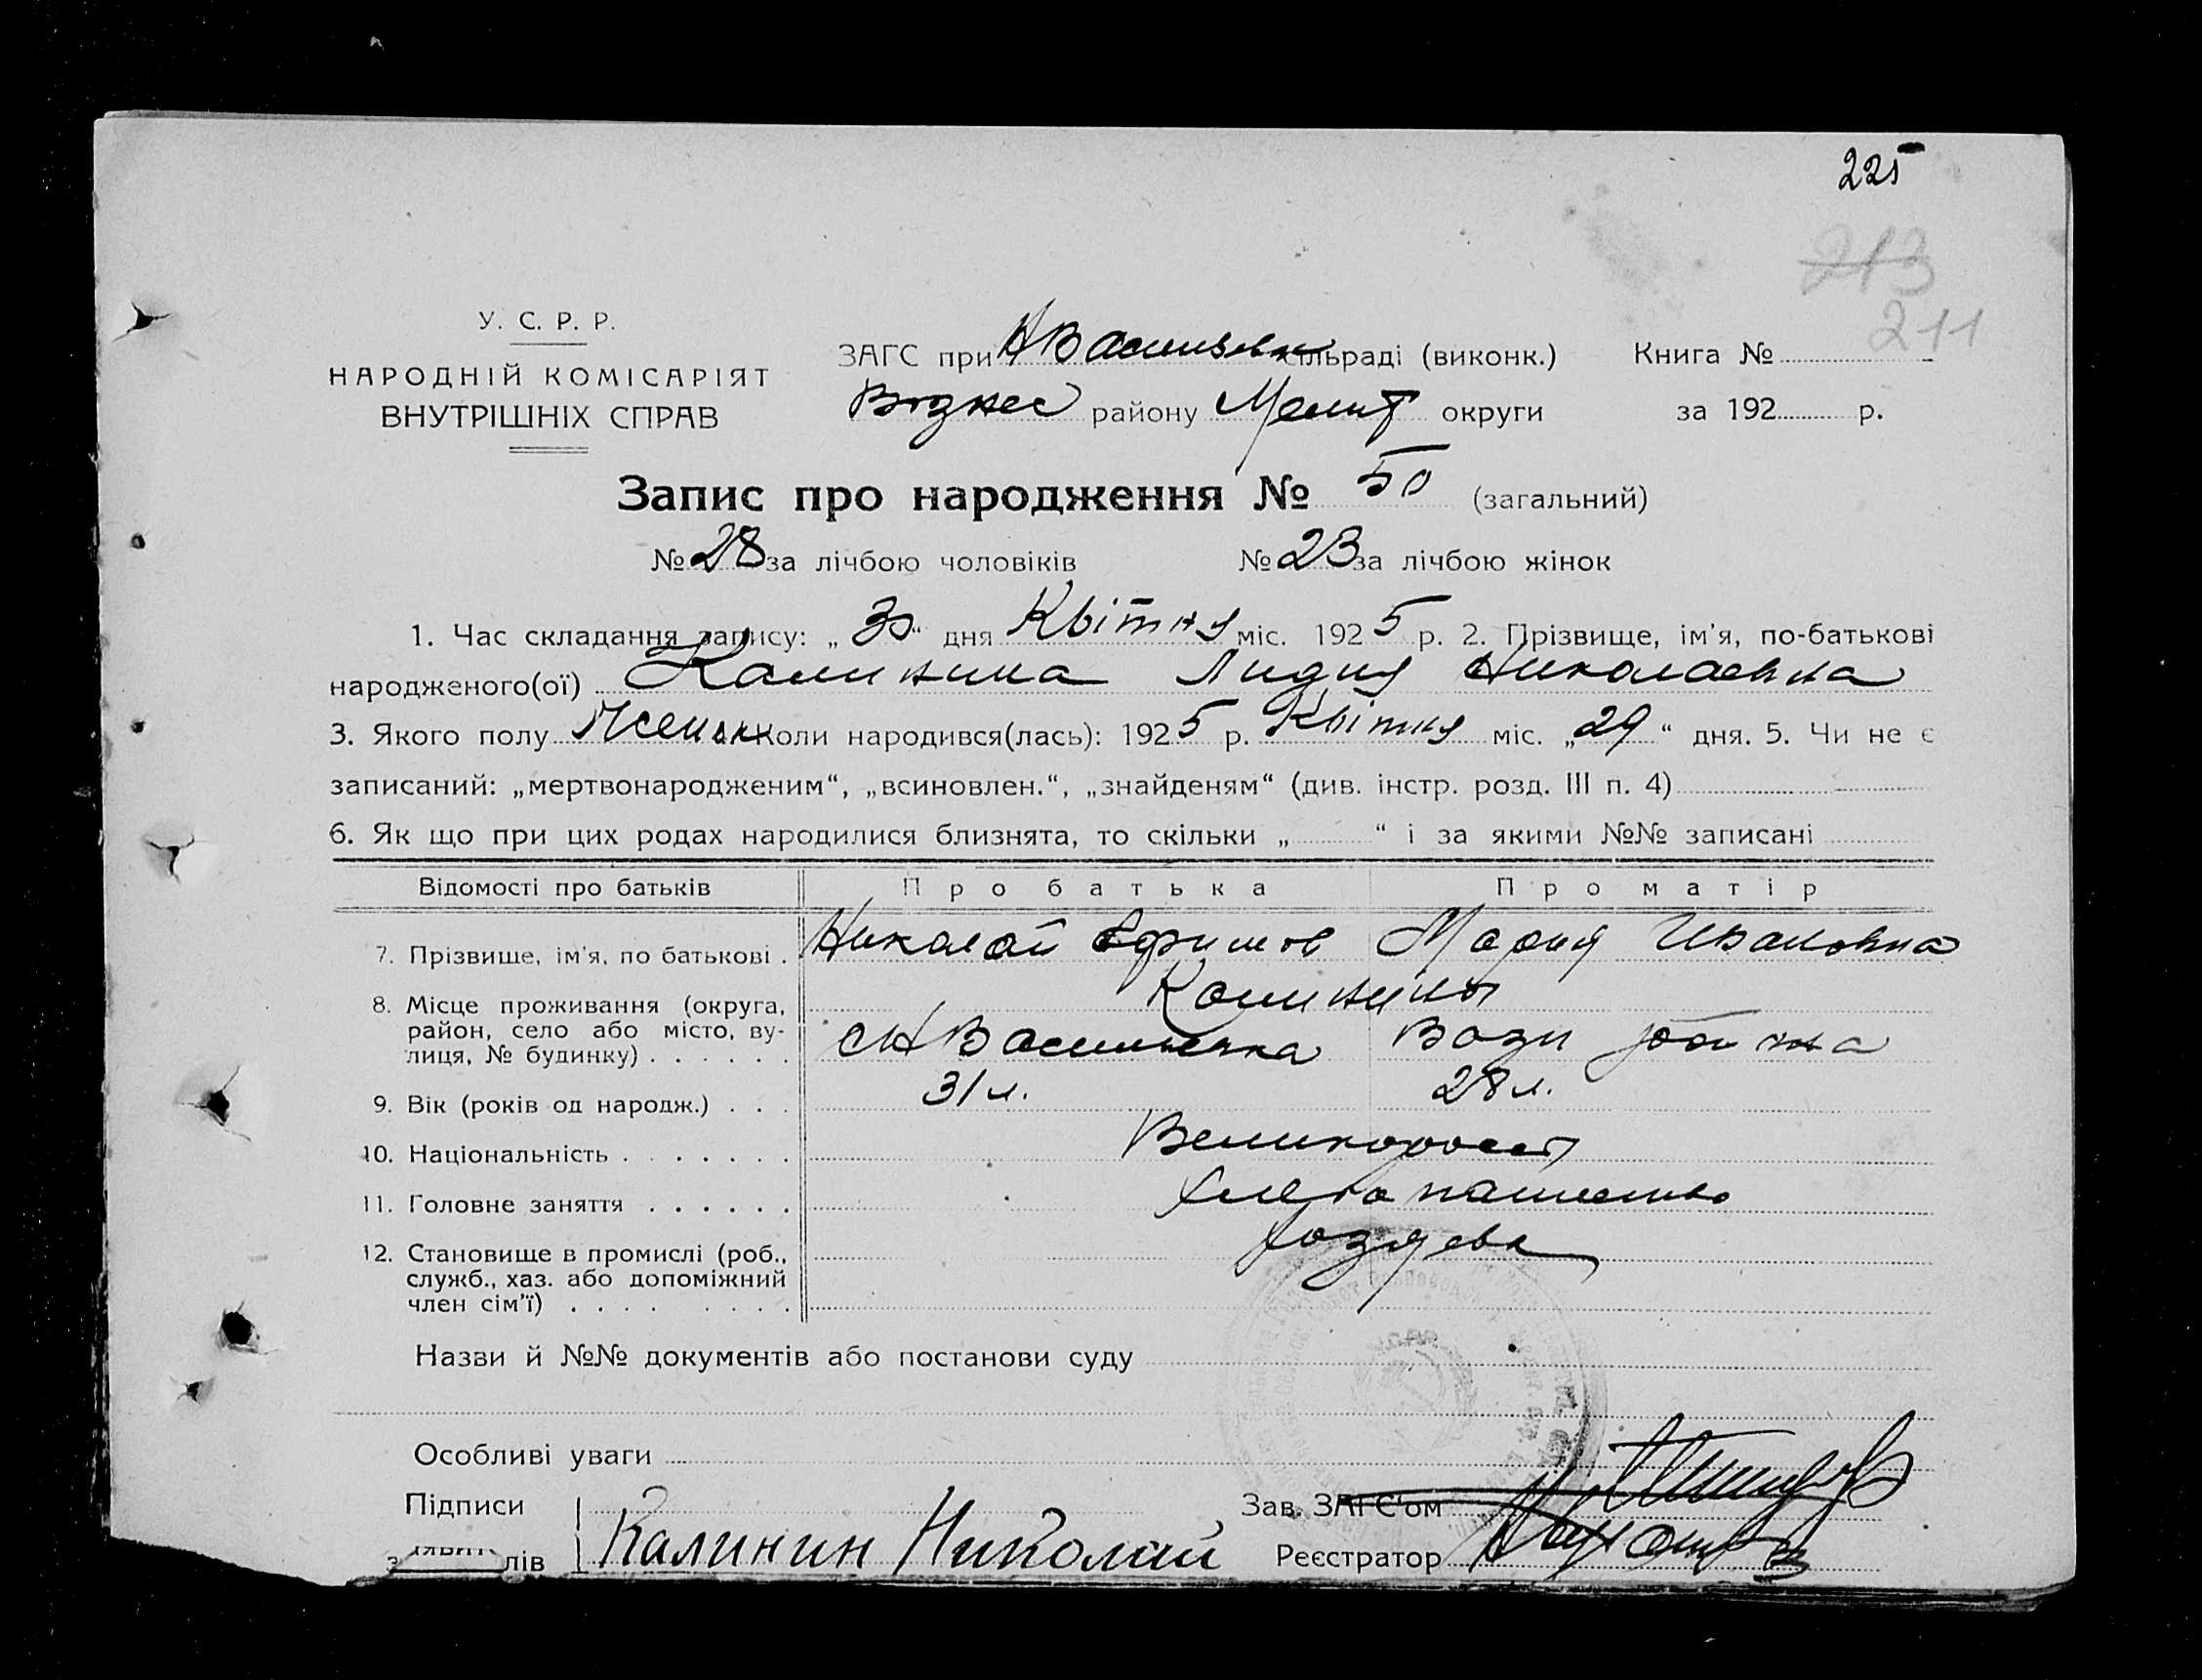 225
213
211
У. С. Р. Р.
НАРОДНІЙ КОМІСАРІЯТ
ВНУТРІШНІХ СПРАВ
ЗАГС при Н Васильевк сільраді (виконк.) Книга №
Вознес район­у Мелит округи за 192 р.
Запис про народження № 50 (загальний)
№ 28 за лічбою чоловіків № 23 за лічбою жінок
1. Час складання запису: „ 30 “ дня Квітня міс. 192 5 р. 2. Прізвище, ім'я, по-батькові
народженого(ої) Калинина Лидия Николаевна
3. Якого полу Женск Коли народився(лась): 192 5 р. Квітня міс. „ 29 “ дня. 5. Чи не є
записаний: „мертвонародженим“, „всиновлен.“, „знайденям“ (див. інстр. розд. III п. 4)
6. Як що при цих родах народилися близнята, то скільки „ “ і за якими №№ записані
Відомості про батьків Про батька Про матір
7. Прізвище, ім'я, по батькові . Николай Ефимов Мария Ивановна
Калинины
8. Місце проживання (округа,
район, село або місто, ву-
лиця, № будинку) . . . . . . с Н Васильевка Возн района
9. Вік (років од народж.) . . . 31 л. 28 л.
10. Національність . . . . . . . Великоросс
11. Головне заняття . . . . . . Хлебопашество
12. Становище в промислі (роб., Хозяева
служб., хаз. або допоміжний
член сім'ї) . . . . . . . .
Назви й №№ документів або постанови суду
Особливі уваги
Підписи Зав. ЗАГС'ом
лів Калинин Николай Реєстратор